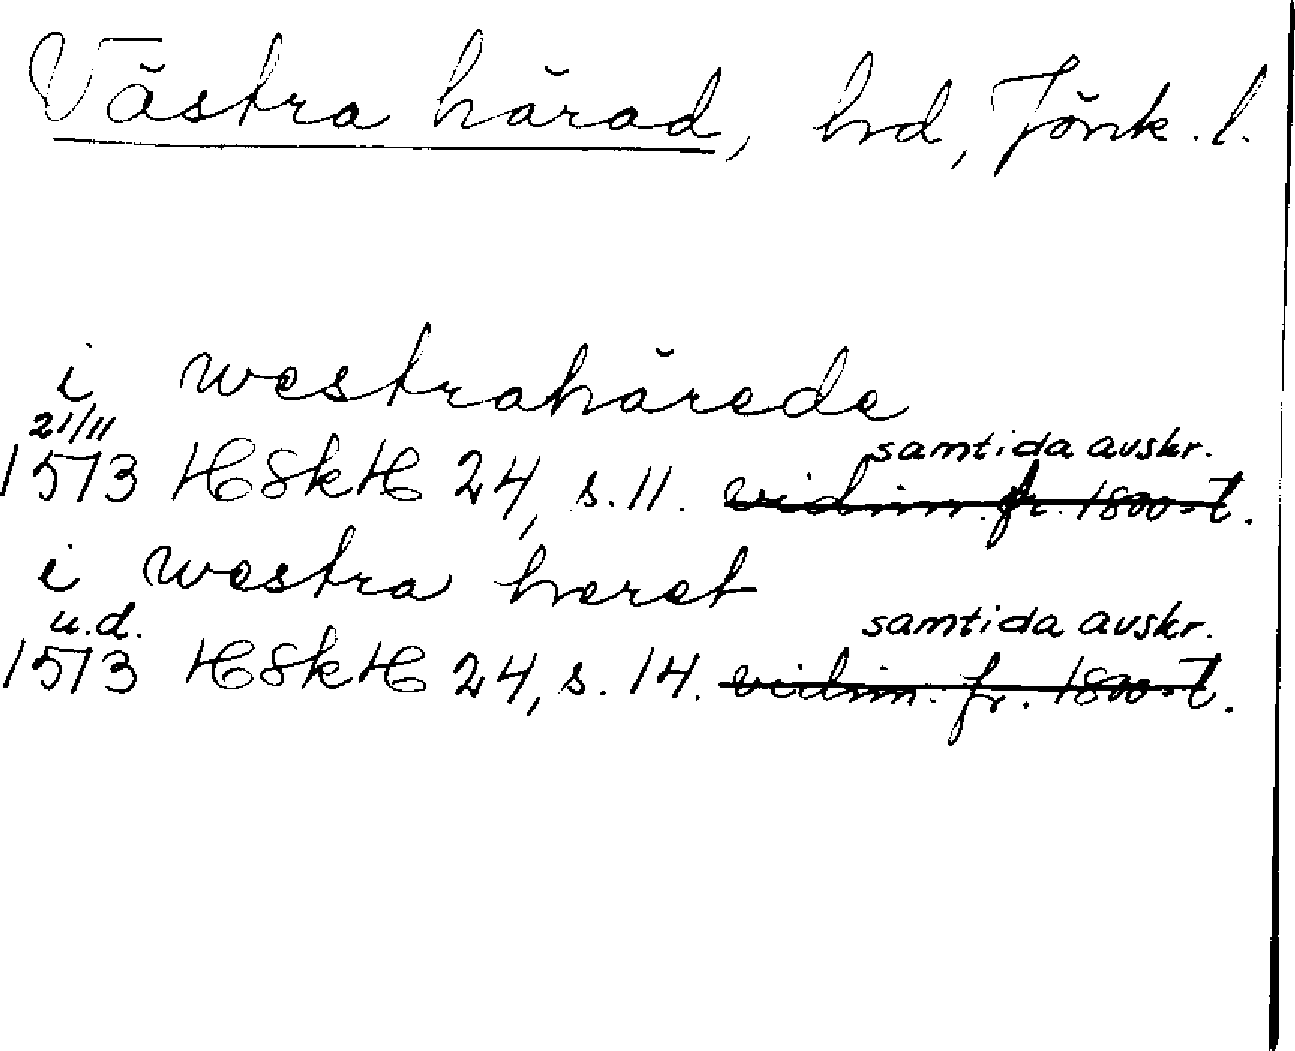 Västra härad, hd, Jönk. l.
i westrahärede
21/11
samtida avskr.
1573 HSkH 24, s. 11. vidim. fr. 1800-t.
i westra heret
u.d.
samtida avskr.
1573 HSkH 24, s. 14. vidim. fr. 1800-t.